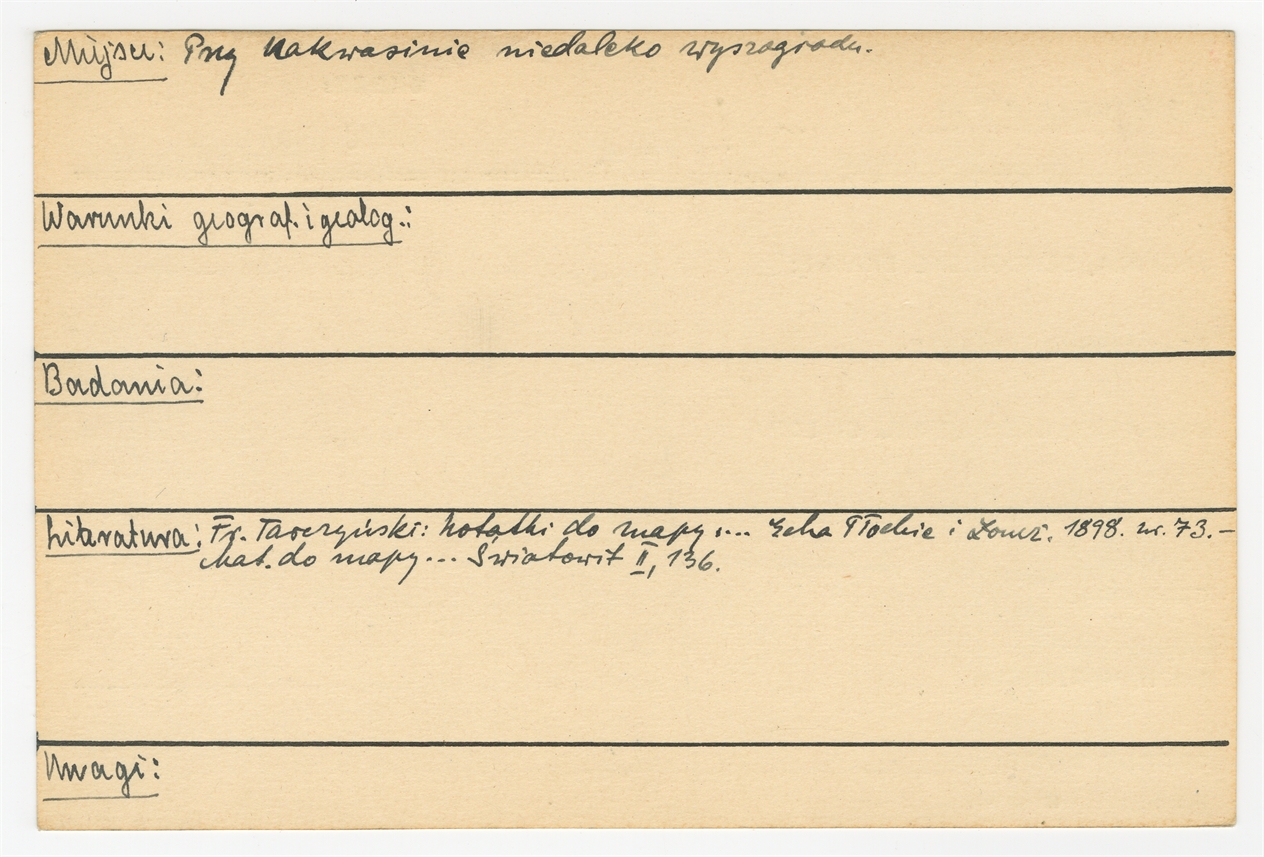 Miejsce: Przy Nakwasinie niedaleko Wyszogrodu.
Warunki geograf. i geolog.:
Badania:
Literatura: Fr. Tarczyński: Notatki do mapy ... Echa Płockie i Łomż. 1898. nr. 73. –
Mat. do mapy ... Światowit II, 136.
Uwagi: